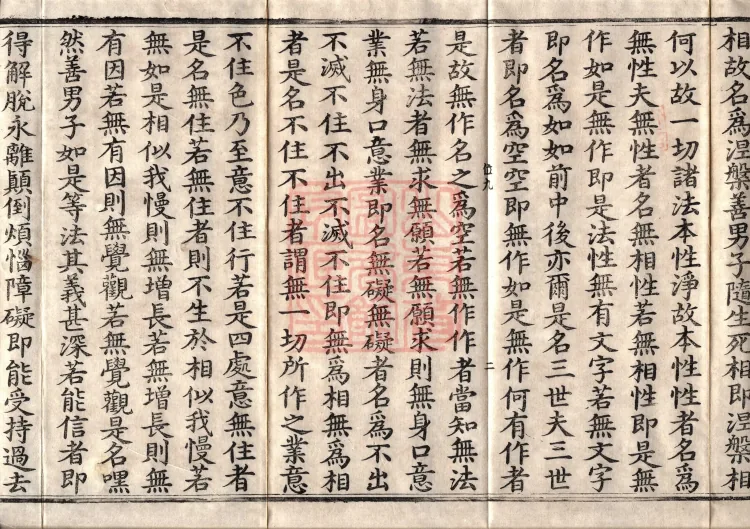 相故名為涅槃善男子隨生死相即涅槃相
何以故一切諸法本性淨故本性性者名為
無性夫無性者名無相性若無相性即是無
作如是無作即是法性無有文字若無文字
即名為如如前中後亦爾是名三世夫三世
者即名為空空即無作如是無作何有作者
伯九
二
是故無作名之為空若無作作者當知無法
若無法者無求無願若無願求則無身口意
業無身口意業即名無礙無礙者名為不出
不滅不住不出不滅不住即無為相無為相
者是名不住不住者謂無一切所作之業意
不住色乃至意不住行若是四處意無住者
是名無住若無住者則不生於相似我慢若
無如是相似我慢則無增長若無增長則無
有因若無有因則無覺觀若無覺觀是名嘿
然善男子如是等法其義甚深若能信者即
得解脫永離顛倒煩惱障礙即能受持過去